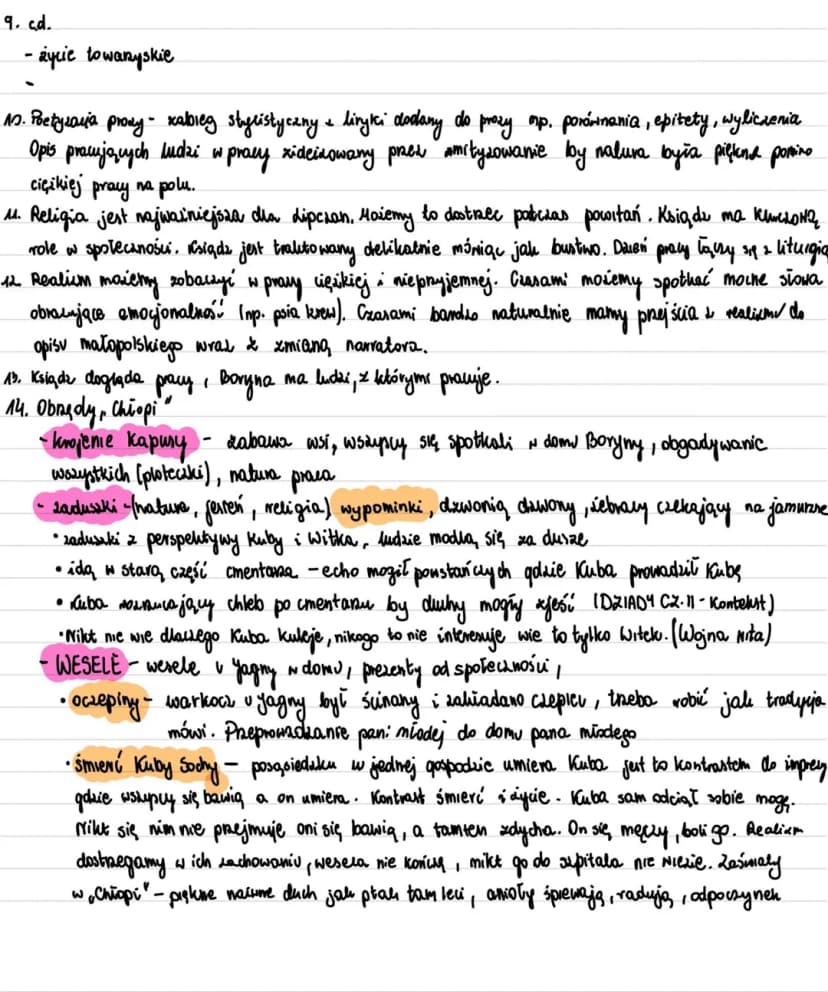 9. cd.
- życie towarzyskie
-
10. Poetyzacja prozy - zabieg stylistyczny z liryki dodany do prozy np. porównania, epitety, wyliczenia
Opis pracujących ludzi w pracy zideizowany przez by natura była piękna pomimo
ciężkiej pracy na polu.
11. Religia jest najważniejsza dla lipczan. Możemy to dostrzec podczas powitań. Ksiądz ma kluczową
role w społeczności. Ksiądz jest traktowany delikatnie mówiąc jak bustwo. Dzień pracy łączy się z liturgią
12. Realizm możemy zobaczyć w pracy ciężkiej i nieprzyjemnej. Czasami możemy spotkać mocne słowa
obrazujące emocjonalność (np. psia krew). Czasami bardzo naturalnie mamy przejścia z realizmu do
opisu małopolskiego wraz z zmianą narratora.
13. Ksiądz dogląda pracy, Boryna ma ludzi, z którymi pracuje.
14. Obrzędy „Chłopi"
- krojenie kapusy - zabawa wsi, wszyscy się spotkali w domu Boryny, obgadywanie
wszystkich (ploteczki), natura praca
- zaduszki - (natura, jesień, religia) wypominki, dzwonią dzwony, żebracy czekający na jamużne
• zaduszki z perspektywy Kuby i Witka, ludzie modlą się za dusze
• idą w starą część cmentarza - echo mogił powstańczych gdzie Kuba prowadził Kubę
• Kuba rozrzucający chleb po cmentarzu by duchy mogły zjeść (DZIADY CZ. II - Kontekst)
• Nikt nie wie dlaczego Kuba kuleje, nikogo to nie interesuje wie to tylko Witek. (Wojna)
- WESELE - wesele u Jagny w domu, prezenty od społeczności,
• oczepiny - warkocz u Jagny był ścinany i zakładano czepiec, trzeba robić jak tradycja
mówi. Przeprowadzanie pani młodej do domu pana młodego
• śmierć Kuby Sochy - po sąsiedzku w jednej gospodzie umiera Kuba jest to kontrastem do imprezy
gdzie wszyscy się bawią a on umiera. Kontrast śmierć i życie. Kuba sam odciął sobie nogę.
Nikt się nim nie przejmuje oni się bawią, a tamten zdycha. On się męczy, boli go. Realizm
dostrzegamy w ich zachowaniu, wesela nie kończą, nikt go do szpitala nie wiezie. Zaświaty
w „Chłopi" - piękne duch jak ptak tam leci, anioły śpiewają, radują, odpoczynek